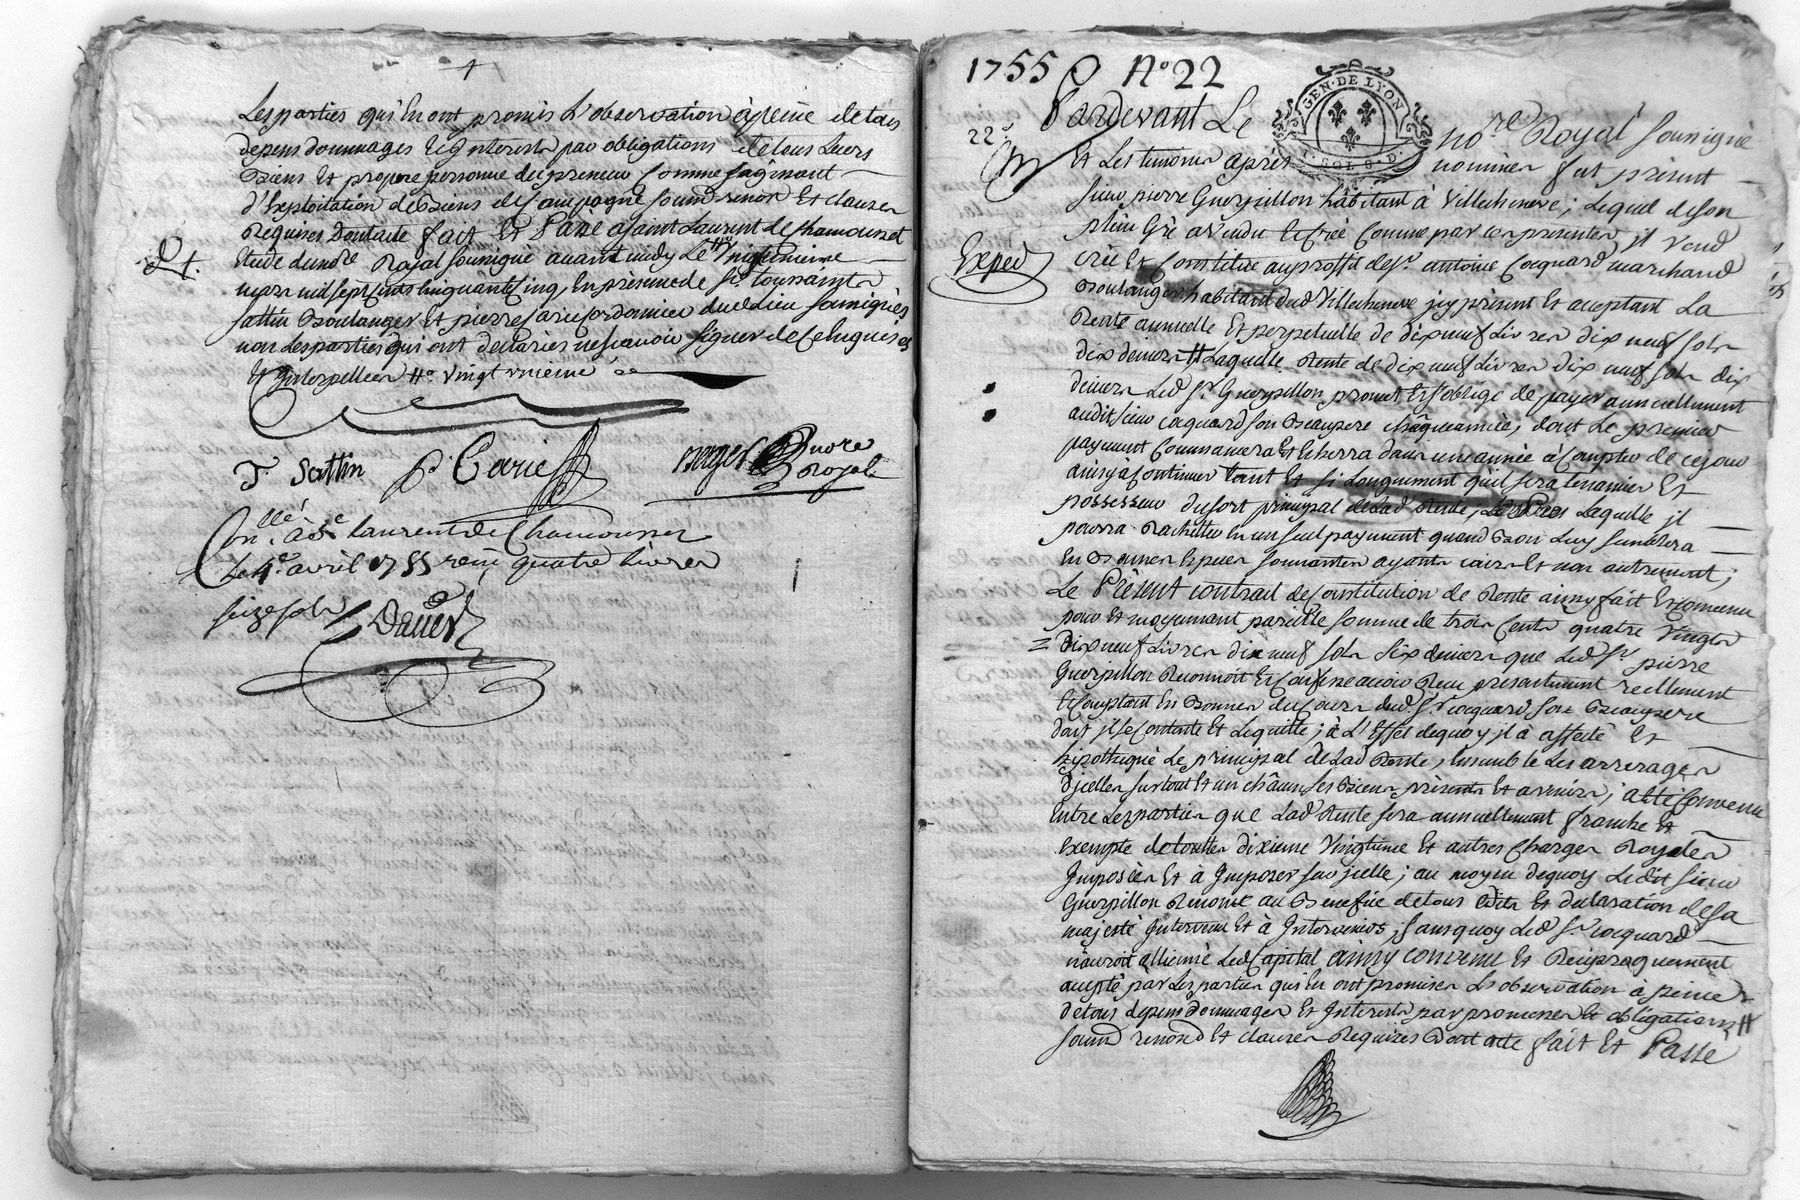 Les parties qui En ont promis L'observation à peine de tous
depens dommages Et Interests par obligations de tous Leurs
Biens Et propre personne du preneur comme s'agissant
d'Exploitation de Biens de Campagne soumd renon Et clauses
Requises Dontacte fait Et Passé a saint Laurent de chamousset
Etude dud nore Royal soussigné avant midy Le # vingtunieme
mars mil sept cents cinquante Cinq En présence de Sr. toussaints
sattin Boulanger Et pierre Carie cordonnier dud Lieu soussignés
non Les parties qui ont declarées ne scavoir signer de ce Enquises
Et Interpellées #o. vingt unieme
T. Sattin P Carie nore Royal
Con.llé à St laurent de Chamousset
Le 4e. avril 1755 reçu quatre Livres
seize sols
1755 No 22
GEN. DE LYON
Pardevant Le nore Royal soussigné
22e
Et Les temoins après nommés fut présent
sieur pierre Guerpillon habitant à Villecheneve; Lequel de son
plein Gré a vendu Et créé comme par ces presentes il vend
Exped
crée Et Constitue au proffit de Sr. antoine Cocquard marchand
Boulanger habitant dud Villecheneve icy présent Et aceptant La
Rente annuelle Et perpetuelle de dix neuf Livres dix neuf sols
dix deniers # Laquelle Rente de dix neuf Livres dix neuf sols dix
deniers Led Sr. Guerpillon promet Et s'oblige de payer annuellement
audit sieur cocquard son Beaupere châque année, dont Le premier
payement Commancera Et Echerra dans une année à Compter de ce jour
ainsy à Continuer tant Et si Longuement qu'il sera tenancier Et
possesseur du sort principal de Lad Rente, Laquelle il
pourra Rachetter En un seul payement quand Bon Luy semblera
En Bonnes Especes sonnantes ayants cours Et non autrement;
Le Présent contrat de Constitution de Rente ainsy fait Et convenu
pour Et moyennant pareille somme de trois Cents quatre Vingts
Dix neuf Livres dix neuf sols six deniers que Led Sr. pierre
Guerpillon Reconnoit Et Confesse avoir Reçu presentement reellement
Et Comptant En Bonnes du Cours dud. Sr. cocquard son Beaupere
dont il se Contente Et Le quitte; à L'Effet de quoy il à affecté Et
hipothequé Le principal de Lad Rente, Ensemble Les arrerages
D'icelles sur tout Et un châcun ses Biens présents Et avenirs; a Eté Convenu
Entre Les parties que Lad Rente sera annuellement franche Et
Exempte de touttes dixieme Vingtieme Et autres Charges Royales
Imposées Et à Imposer sur jcelle; au moyen de quoy Ledit sieur
Guerpillon Renonce au Benefice de tous Edits Et declaration de sa
majesté Intervenu Et à Intervenirs, sans quoy Led Sr. cocquard
n'auroit allienné Led Capital ainsy convenu Et Reciproquement
acepté par Les parties qui En ont promises Ls observation à peine
de tous depens Dommages Et Interests par promesses Et obligations #
soumd renond Et clauses Requizes Dont acte fait Et Passé